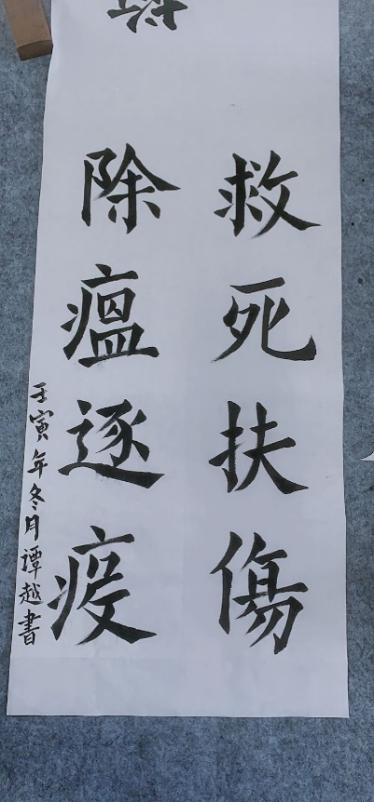 救死扶傷
除瘟逐疫
壬寅年冬月譚越書